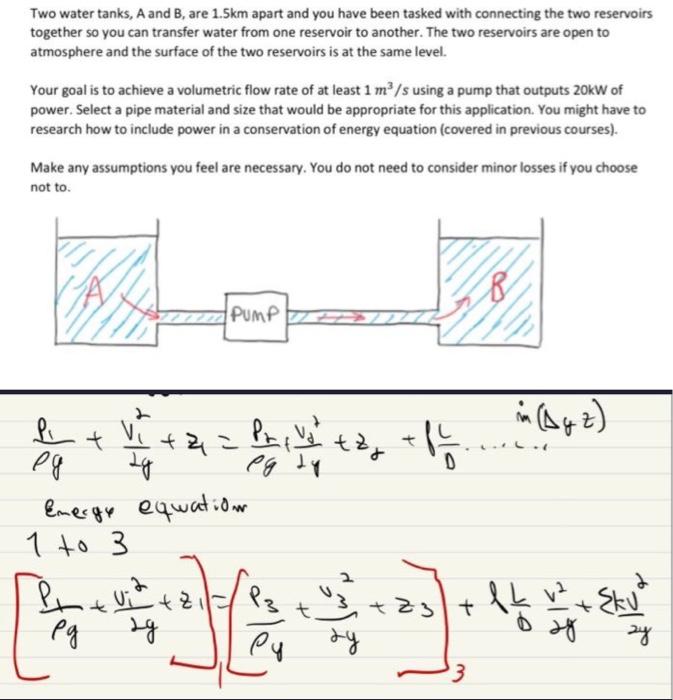 Two water tanks, A and B, are 1.5km apart and you have been tasked with connecting the two reservoirs
together so you can transfer water from one reservoir to another. The two reservoirs are open to
atmosphere and the surface of the two reservoirs is at the same level.
Your goal is to achieve a volumetric flow rate of at least 1 m³/s using a pump that outputs 20kW of
power. Select a pipe material and size that would be appropriate for this application. You might have to
research how to include power in a conservation of energy equation (covered in previous courses).
Make any assumptions you feel are necessary. You do not need to consider minor losses if you choose
not to.
A PUMP B
P₁/ρg + V₁²/2g + z₁ = P₂/ρg + V₂²/2g + z₂ + f L/D ....... in (Δ y z)
Energy equation
1 to 3
[P₁/ρg + V₁²/2g + z₁]₁ = [P₃/ρg + V₃²/2g + z₃]₃ + f L/D V²/2g + ΣkV²/2g